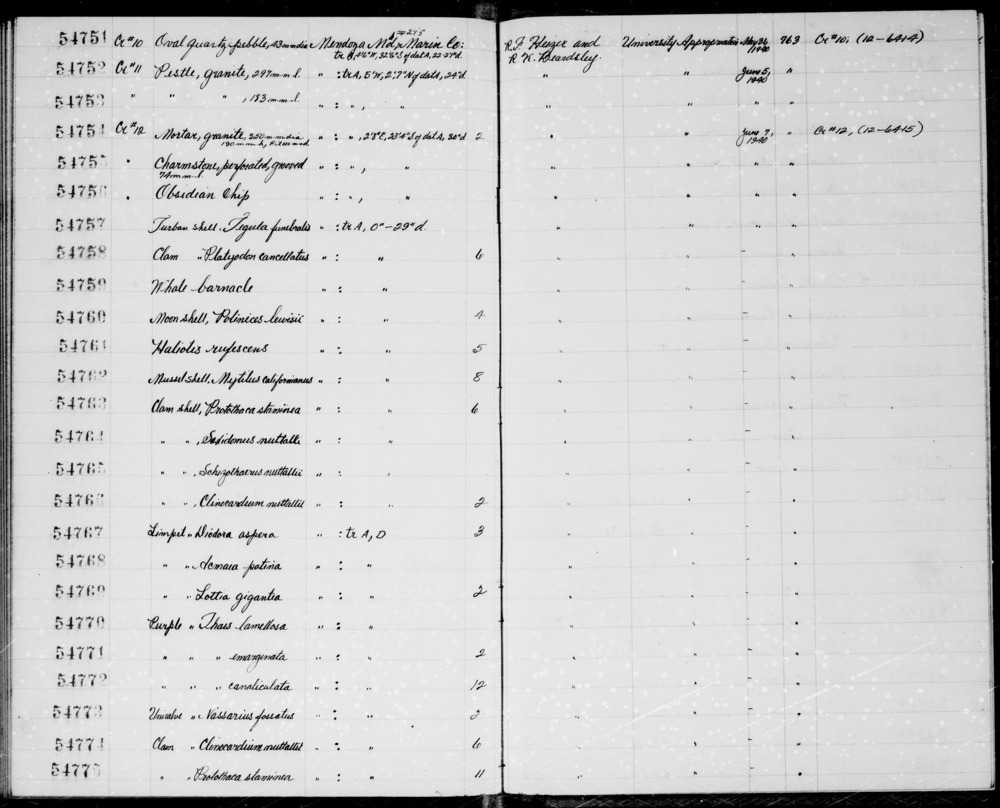 54751 Cr #10 Oval quartz pebble, 43 mm dia Mendoza Md, Marin Co: R. F. Heizer and University Appropriation May 31, 1940 763 Cr #10; (12-6414)
#275
R. K. Beardsley
54752 Cr #11 Pestle, granite, 297 mm l. " : tr A, 5'W, 2'7"N of dat A, 24"d. June 5, 1940 "
54753 " " , 183 mm l. " : " , " " " " "
54754 Cr #12 Mortar, granite, dia " : " , 2'8"E, 23'4"S of dat A, 30"d 2 " " June 7, 1940 " Cr #12, (12-6415)
190 mm h,
54755 " Charmstone, perforated, grooved " : " , " " " " "
74 mm l.
54756 " Obsidian Chip " : " , " " " " "
54757 Turban shell. Tegula funebralis " : tr A, 0"-29"d. " " " "
54758 Clam " Platyodon cancellatus " : " 6 " " " "
54759 Whale barnacle " : " " " " "
54760 Moon shell, Polinices lewisii " : " 4 " " " "
54761 Haliotis rufescens " : " 5 " " " "
54762 Mussel shell, Mytilus californianus " : " 8 " " " "
54763 Clam shell, Protothaca staminea " : " 6 " " " "
54764 " " , Saxidomus nuttalli " : " " " " "
54765 " " , Schizothaerus nuttallii " : " " " " "
54766 " " , Clinocardium nuttallii " : " 2 " " " "
54767 Limpet " Diodora aspera " : tr A, D 3 " " " "
54768 " " Acmaea patina " : " " " " "
54769 " " Lottia gigantea " : " 2 " " " "
54770 Purple " Thais lamellosa " : " " " " "
54771 " " " emarginata " : " 2 " " " "
54772 " " " canaliculata " : " 12 " " " "
54773 Univalve " Nassarius fossatus " : " 2 " " " "
54774 Clam " Clinocardium nuttallii " : " 6 " " " "
54775 " " Protothaca staminea " : " 11 " " " "